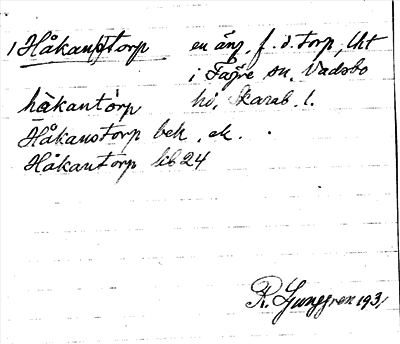 1 Håkanstorp en äng, f. d. torp, Utt
i Fägre sn. Vadsbo
håkantorp hd, Skarab. l.
Håkanstorp bek. ek.
Håkantorp lib 24
R. Ljunggren 1931